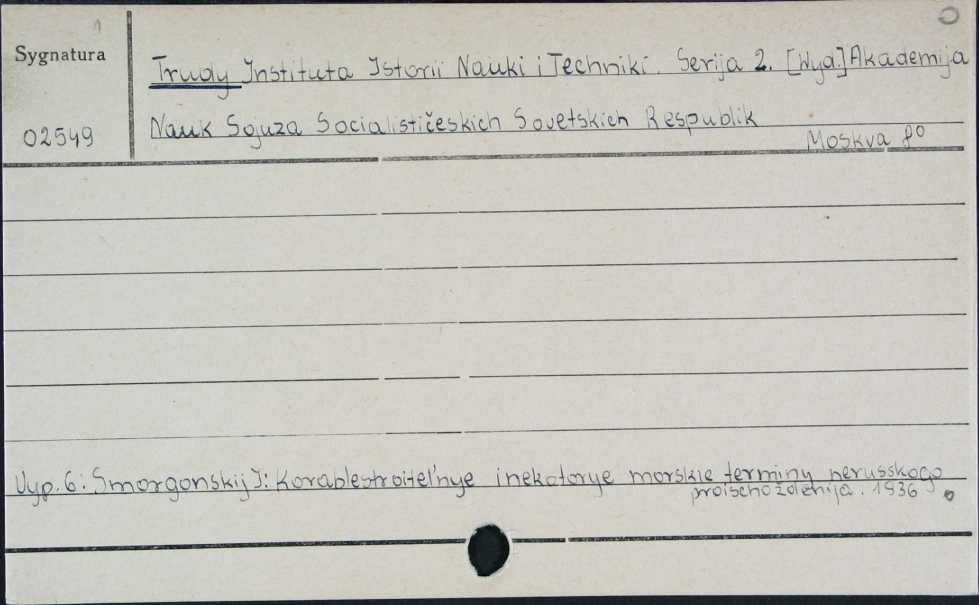 Sygnatura
Trudy Instituta Istorii Nauki i Techniki. Serija 2. [Wyd.] Akademija
02549
Nauk Sojuza Socialističeskich Sovetskich Respublik
Moskva 8°
Vyp. 6: Smorgonskij I: Korablestroitel'nye i nekotorye morskie terminy nerusskogo
proischoždenija. 1936